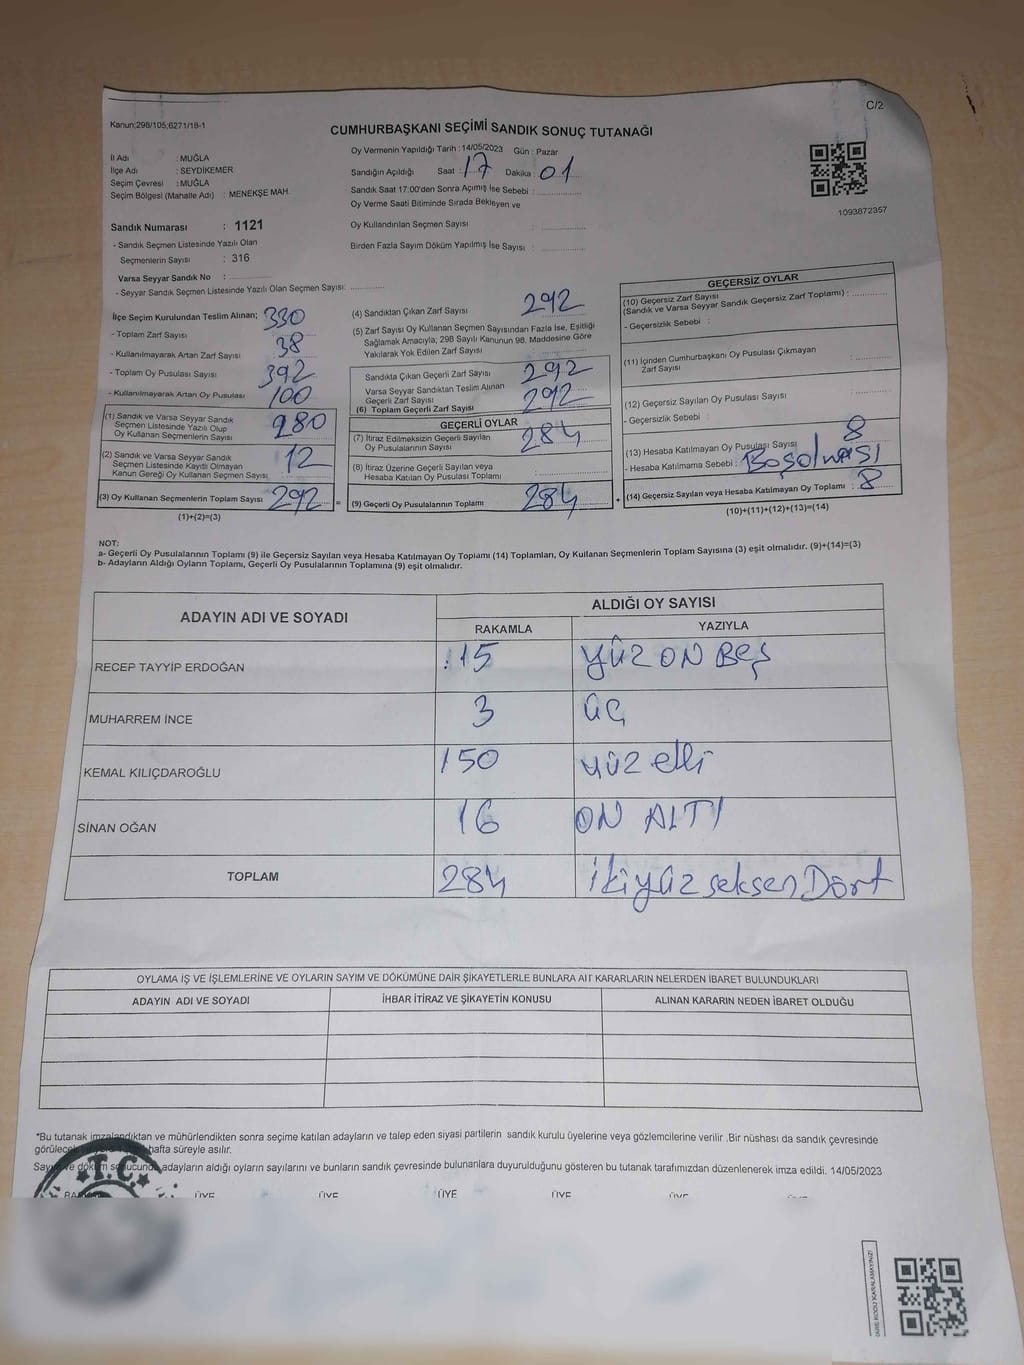 C/2
Kanun:298/105;6271/18-1
CUMHURBAŞKANI SEÇİMİ SANDIK SONUÇ TUTANAĞI
İl Adı : MUĞLA
İlçe Adı : SEYDİKEMER
Seçim Çevresi : MUĞLA
Seçim Bölgesi (Mahalle Adı) : MENEKŞE MAH.
Sandık Numarası : 1121
- Sandık Seçmen Listesinde Yazılı Olan
Seçmenlerin Sayısı : 316
Varsa Seyyar Sandık No : ............
- Seyyar Sandık Seçmen Listesinde Yazılı Olan Seçmen Sayısı: ............
Oy Vermenin Yapıldığı Tarih : 14/05/2023 Gün : Pazar
Sandığın Açıldığı Saat : 17 Dakika : 01
Sandık Saat 17.00'den Sonra Açımış İse Sebebi : ............
Oy Verme Saati Bitiminde Sırada Bekleyen ve
Oy Kullandırılan Seçmen Sayısı : ............
Birden Fazla Sayım Döküm Yapılmış İse Sayısı : ............
1093872357
İlçe Seçim Kurulundan Teslim Alınan;
- Toplam Zarf Sayısı 330
- Kullanılmayarak Artan Zarf Sayısı 38
- Toplam Oy Pusulası Sayısı 392
- Kullanılmayarak Artan Oy Pusulası 100
(1) Sandık ve Varsa Seyyar Sandık
Seçmen Listesinde Yazılı Olup
Oy Kullanan Seçmenlerin Sayısı 280
(2) Sandık ve Varsa Seyyar Sandık
Seçmen Listesinde Kayıtlı Olmayan
Kanun Gereği Oy Kullanan Seçmen Sayısı : 12
(3) Oy Kullanan Seçmenlerin Toplam Sayısı : 292 =
(1)+(2)=(3)
(4) Sandıktan Çıkan Zarf Sayısı 292
(5) Zarf Sayısı Oy Kullanan Seçmen Sayısından Fazla İse, Eşitliği
Sağlamak Amacıyla; 298 Sayılı Kanunun 98. Maddesine Göre
Yakılarak Yok Edilen Zarf Sayısı
Sandıkta Çıkan Geçerli Zarf Sayısı : 292
Varsa Seyyar Sandıktan Teslim Alınan
Geçerli Zarf Sayısı
(6) Toplam Geçerli Zarf Sayısı 292
GEÇERLİ OYLAR
(7) İtiraz Edilmeksizin Geçerli Sayılan
Oy Pusulalarının Sayısı 284
(8) İtiraz Üzerine Geçerli Sayılan veya
Hesaba Katılan Oy Pusulası Toplamı :
(9) Geçerli Oy Pusulalarının Toplamı : 284 +
GEÇERSİZ OYLAR
(10) Geçersiz Zarf Sayısı
(Sandık ve Varsa Seyyar Sandık Geçersiz Zarf Toplamı) : ............
- Geçersizlik Sebebi :
(11) İçinden Cumhurbaşkanı Oy Pusulası Çıkmayan
Zarf Sayısı : ............
(12) Geçersiz Sayılan Oy Pusulası Sayısı : ............
- Geçersizlik Sebebi :
(13) Hesaba Katılmayan Oy Pusulası Sayısı : 8
- Hesaba Katılmama Sebebi : Boş olması
(14) Geçersiz Sayılan veya Hesaba Katılmayan Oy Toplamı : 8
(10)+(11)+(12)+(13)=(14)
NOT:
a- Geçerli Oy Pusulalarının Toplamı (9) ile Geçersiz Sayılan veya Hesaba Katılmayan Oy Toplamı (14) Toplamları, Oy Kullanan Seçmenlerin Toplam Sayısına (3) eşit olmalıdır. (9)+(14)=(3)
b- Adayların Aldığı Oyların Toplamı, Geçerli Oy Pusulalarının Toplamına (9) eşit olmalıdır.
ADAYIN ADI VE SOYADI
ALDIĞI OY SAYISI
RAKAMLA YAZIYLA
RECEP TAYYİP ERDOĞAN 115 yüz on Beş
MUHARREM İNCE 3 üç
KEMAL KILIÇDAROĞLU 150 yüz elli
SİNAN OĞAN 16 ON ALTI
TOPLAM 284 ikiyüz seksen Dört
OYLAMA İŞ VE İŞLEMLERİNE VE OYLARIN SAYIM VE DÖKÜMÜNE DAİR ŞİKAYETLERLE BUNLARA AİT KARARLARIN NELERDEN İBARET BULUNDUKLARI
ADAYIN ADI VE SOYADI İHBAR İTİRAZ VE ŞİKAYETİN KONUSU ALINAN KARARIN NEDEN İBARET OLDUĞU
*Bu tutanak imzalandıktan ve mühürlendikten sonra seçime katılan adayların ve talep eden siyasi partilerin sandık kurulu üyelerine veya gözlemcilerine verilir .Bir nüshası da sandık çevresinde
hafta süreyle asılır.
Sayım ve döküm sonucunda adayların aldığı oyların sayılarını ve bunların sandık çevresinde bulunanlara duyurulduğunu gösteren bu tutanak tarafımızdan düzenlenerek imza edildi. 14/05/2023
T.C.
ÜYE ÜYE ÜYE ÜYE
KARE KODU KARALAMAYINIZ!